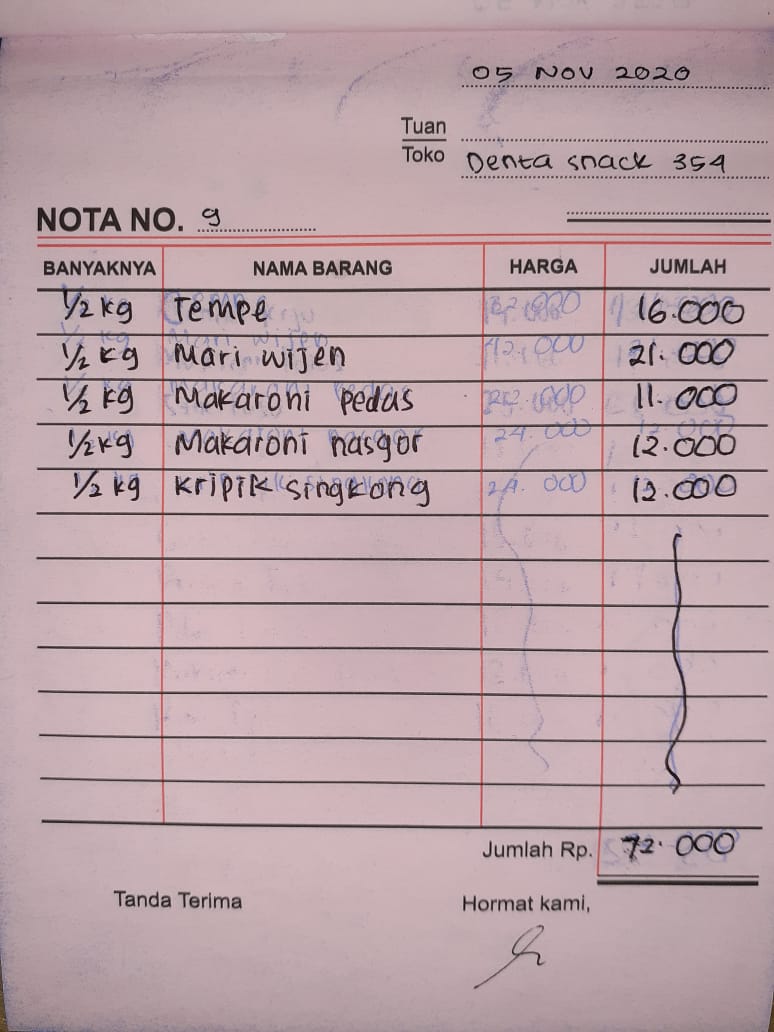 05 NOV 2020
Tuan
Toko Denta snack 354
NOTA NO. 9
BANYAKNYA NAMA BARANG HARGA JUMLAH
1/2 kg Tempe 16.000
1/2 kg Mari wijen 21.000
1/2 kg Makaroni pedas 11.000
1/2 kg Makaroni nasgor 24.000 12.000
1/2 kg Kripik singkong 24.000 12.000
Jumlah Rp. 72.000
Tanda Terima Hormat kami,